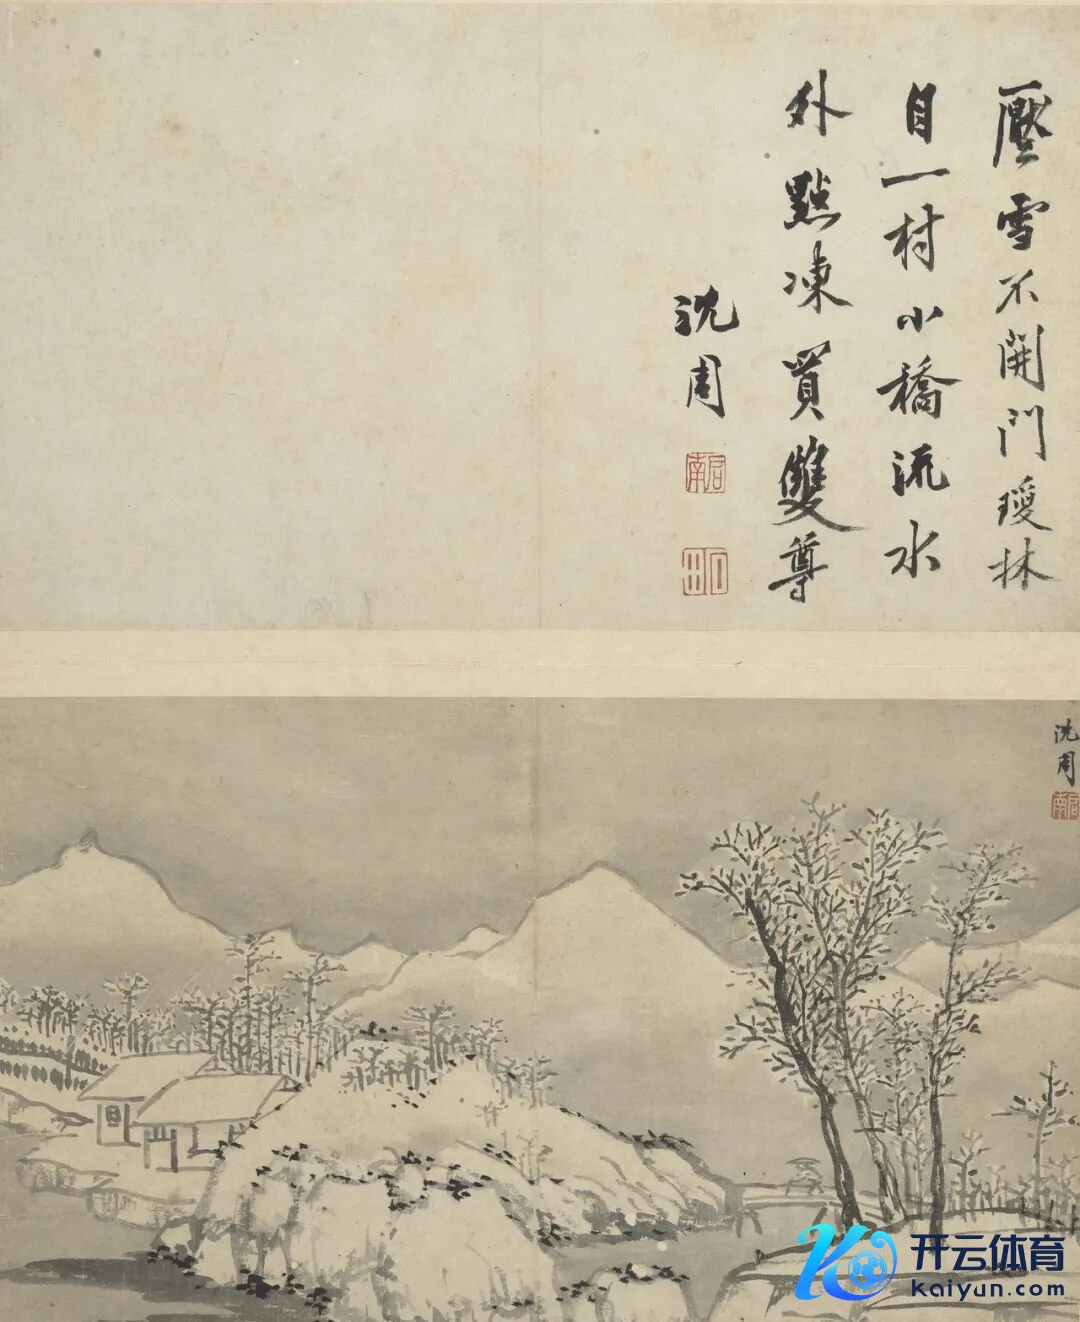 壓雪不開門瓊林
自一村小橋流水
外點凍買雙尊
沈周
啓南
沈周
啓南
开云体育
Kaiyun.com